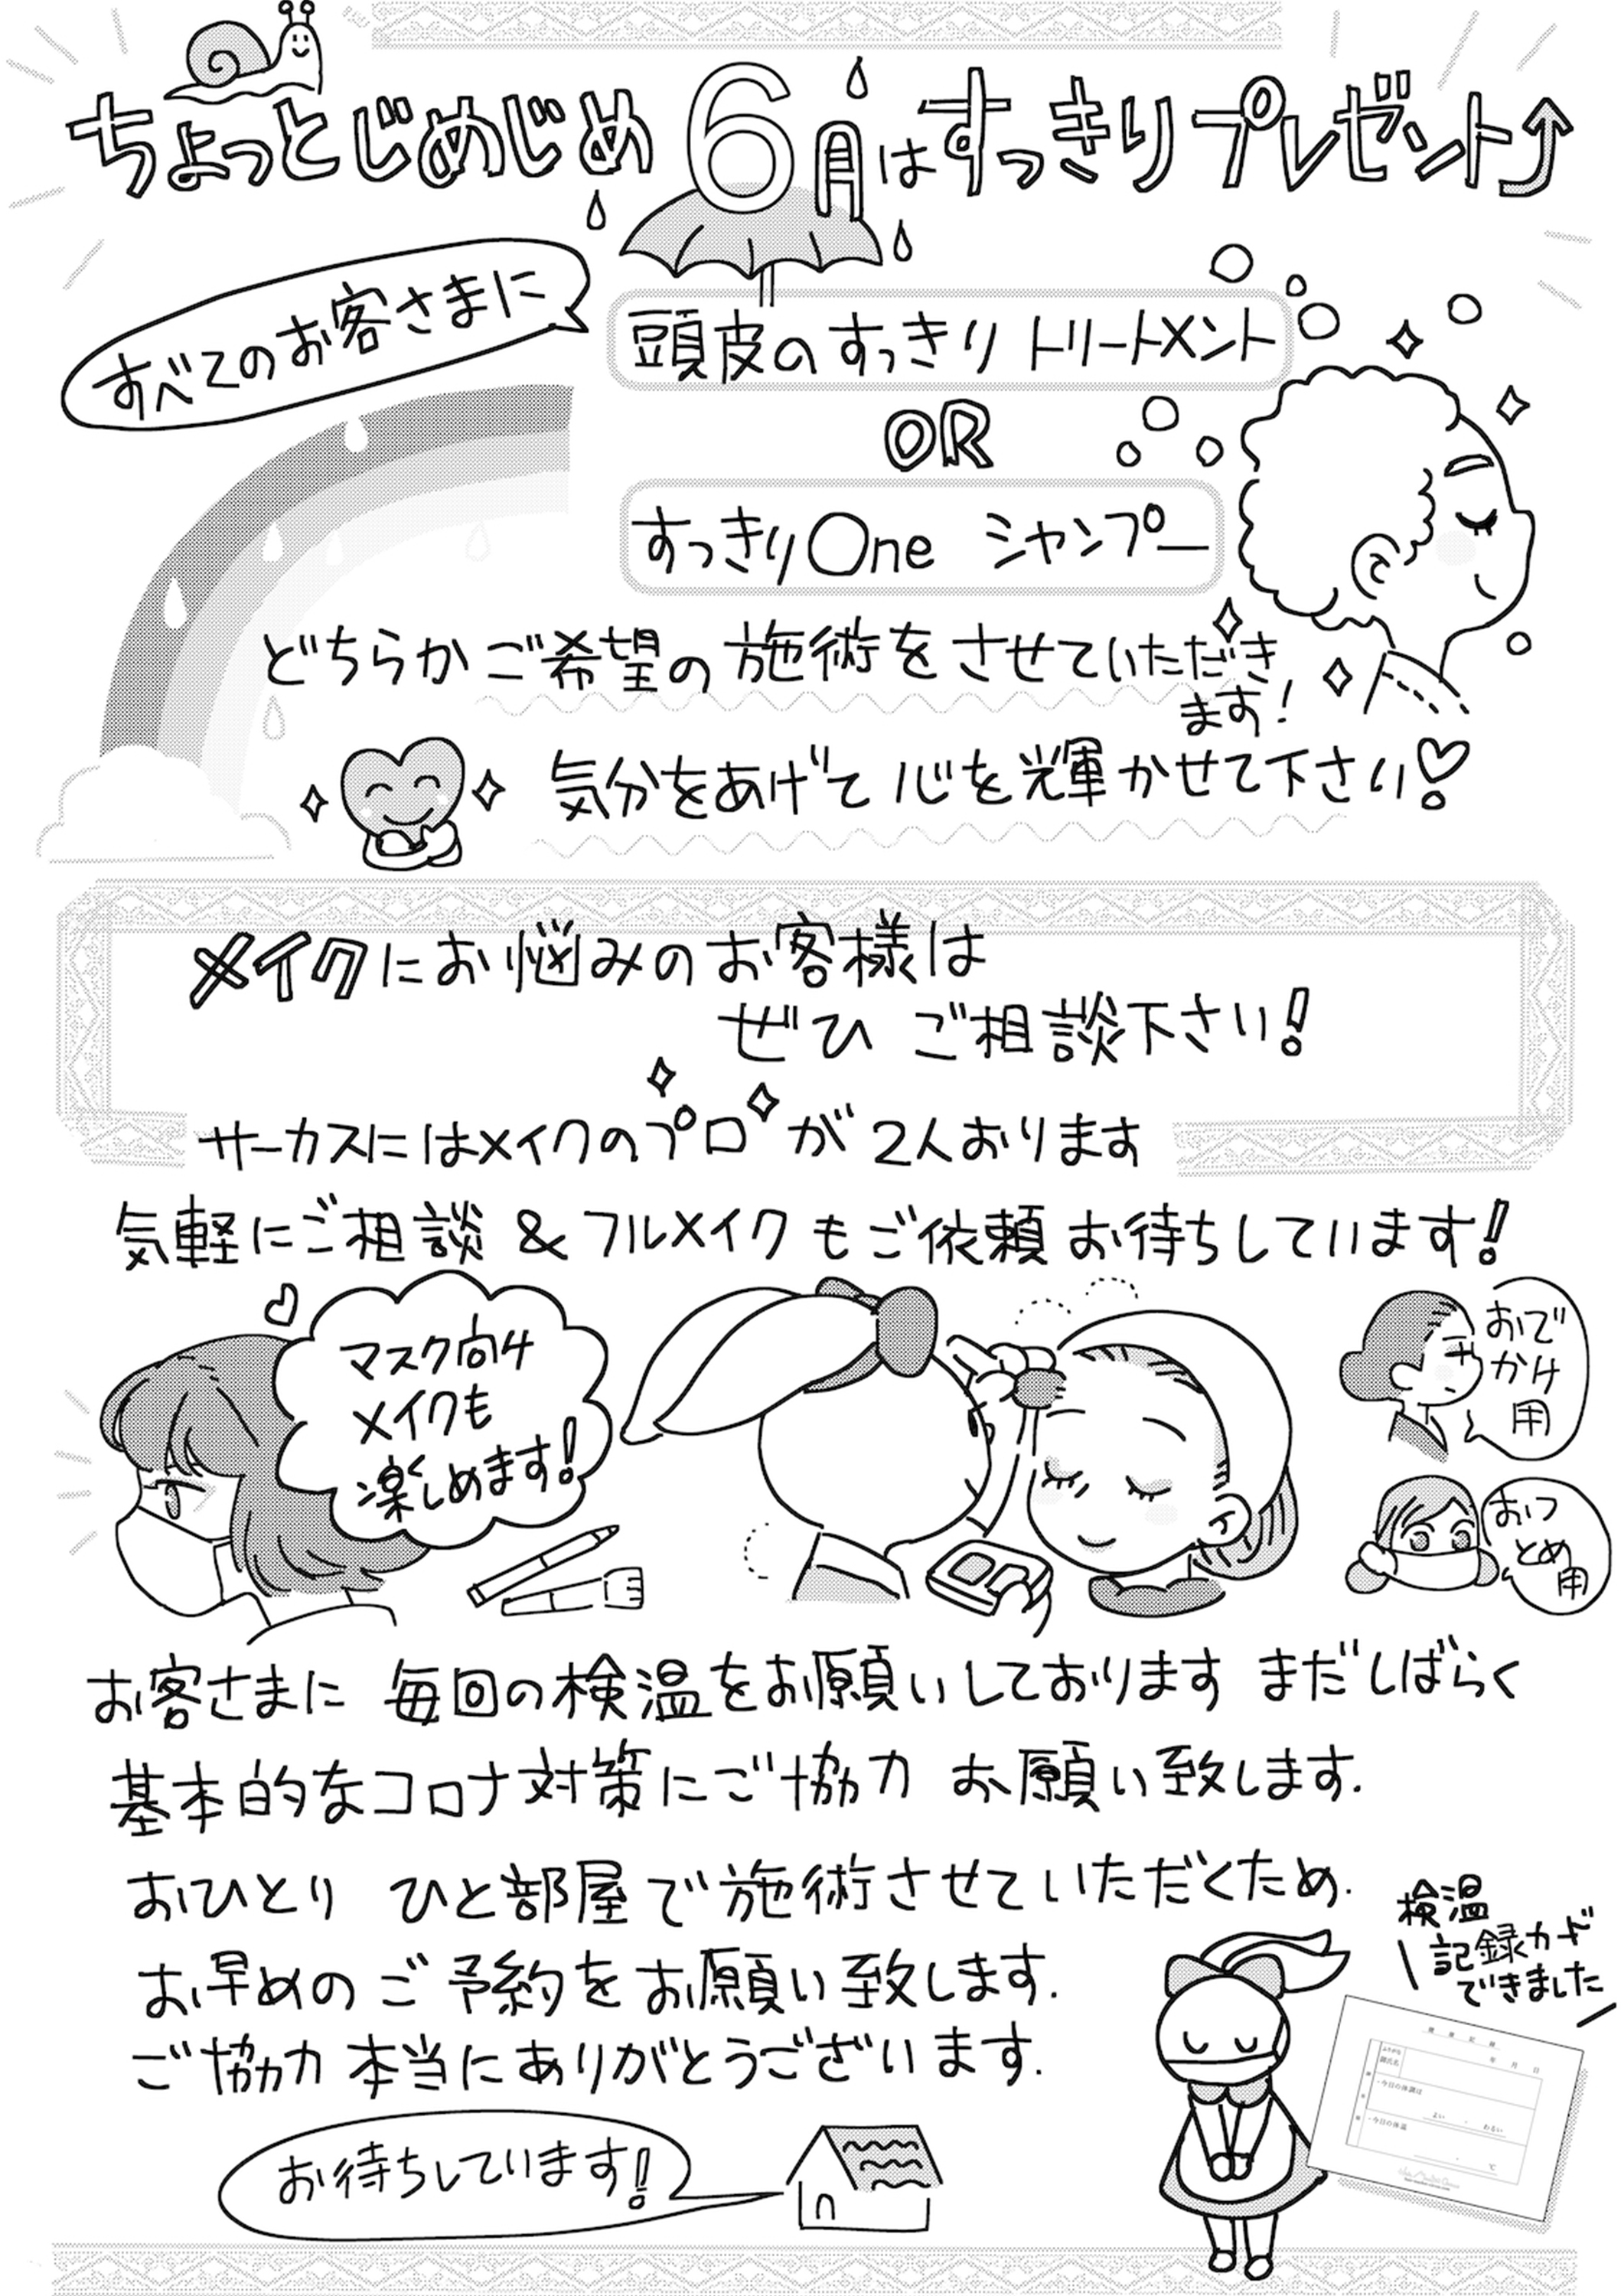 ちょっとじめじめ6月はすっきりプレゼント
すべてのお客さまに
頭皮のすっきりトリートメント
OR
すっきりOne シャンプー
どちらかご希望の施術をさせていただき
ます!
気分をあげて心を輝かせて下さい
メイクにお悩みのお客様は
ぜひ ご相談下さい!
サーカスにはメイクのプロが2人おります
気軽にご相談&フルメイクもご依頼お待ちしています!
マスク向け
メイクも
楽しめます!
おで
かけ
用
おつ
とめ
用
お客さまに 毎回の検温をお願いしております まだしばらく
基本的なコロナ対策にご協力 お願い致します.
おひとり ひと部屋で施術させていただくため.
お早めのご予約をお願い致します.
ご協力本当にありがとうございます.
検温
記録カード
できました
年 月 日
ふりがな
御氏名
・今日の体調は
よい ・ わるい
・今日の体温
℃
お待ちしています!